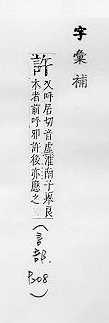 字彙補
許 又呼居切音虛淮南子舉良
木者前呼邪許後亦應之
(言部.